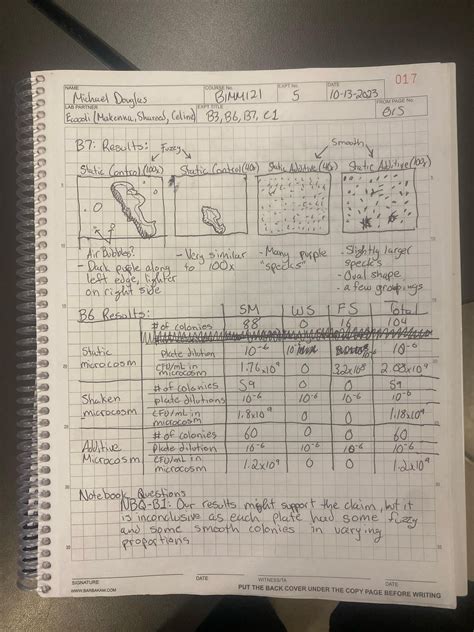 017
NAME COURSE No. EXPT No. DATE
Michael Douglas BIMM121 5 10-13-2023
LAB PARTNER EXPT TITLE FROM PAGE No.
(Makenna, Sharood, Celine) B3, B6, B7, C1 015
B7: Results: Fuzzy Smooth
Static Control (100x) Static Control (40x) Static Additive (40x) Static Additive (100x)
Air Bubbles?
- Dark purple along left edge, lighter on right side
- Very similar to 100x
- Many purple "specks"
- Slightly larger specks
- Oval shape
- a few groupings
B6 Results: SM WS FS Total
# of colonies 88 0 16 104
Static microcosm Plate dilution 10⁻⁶ 10⁻⁶
CFU/mL in microcosm 1.76x10⁹ 0 3.2x10⁸ 2.08x10⁹
Shaken microcosm # of colonies 59 0 0 59
plate dilutions 10⁻⁶ 10⁻⁶ 10⁻⁶ 10⁻⁶
CFU/mL in microcosm 1.18x10⁹ 0 0 1.18x10⁹
Additive Microcosm # of colonies 60 0 0 60
Plate dilution 10⁻⁶ 10⁻⁶ 10⁻⁶ 10⁻⁶
CFU/mL in microcosm 1.2x10⁹ 0 0 1.2x10⁹
Notebook Questions
NBQ-B1: Our results might support the claim, but it
is inconclusive as each plate had some fuzzy
and some smooth colonies in varying
proportions
SIGNATURE DATE WITNESS/TA DATE
WWW.BARBAKAM.COM PUT THE BACK COVER UNDER THE COPY PAGE BEFORE WRITING